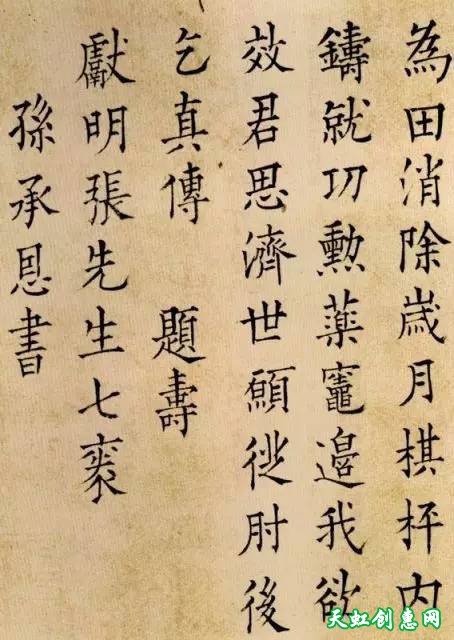 為田消除歲月棋枰内
鑄就功勳藥竈邉我欲
效君思濟世願從肘後
乞真傳 題壽
獻明張先生七袠
孫承恩書
天虹创惠网